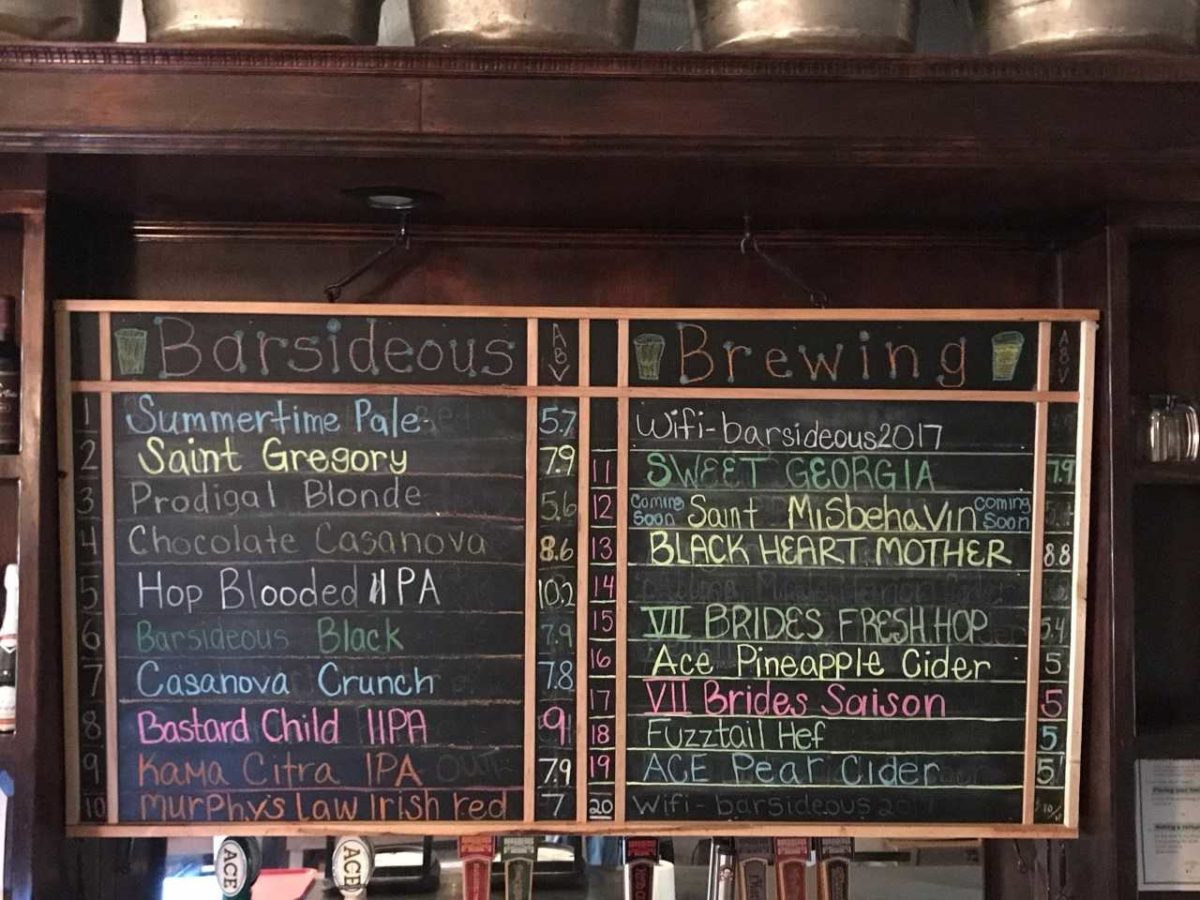 Barsideous ABV
1 Summertime Pale 5.7
2 Saint Gregory 7.9
3 Prodigal Blonde 5.6
4 Chocolate Casanova 8.6
5 Hop Blooded IPA 10.2
6 Barsideous Black 7.9
7 Casanova Crunch 7.8
8 Bastard Child IIPA 9
9 Kama Citra IPA 7.9
10 Murphy's Law Irish red 7
Brewing ABV
Wifi-barsideous2017
11 SWEET GEORGIA 7.9
12 Coming Soon Saint Misbehavin Coming Soon
13 BLACK HEART MOTHER 8.8
14
15 VII BRIDES FRESH HOP 5.4
16 Ace Pineapple Cider 5
17 VII Brides Saison 5
18 Fuzztail Hef 5
19 ACE Pear Cider 5
20 Wifi-barsideous
ACE
ACE